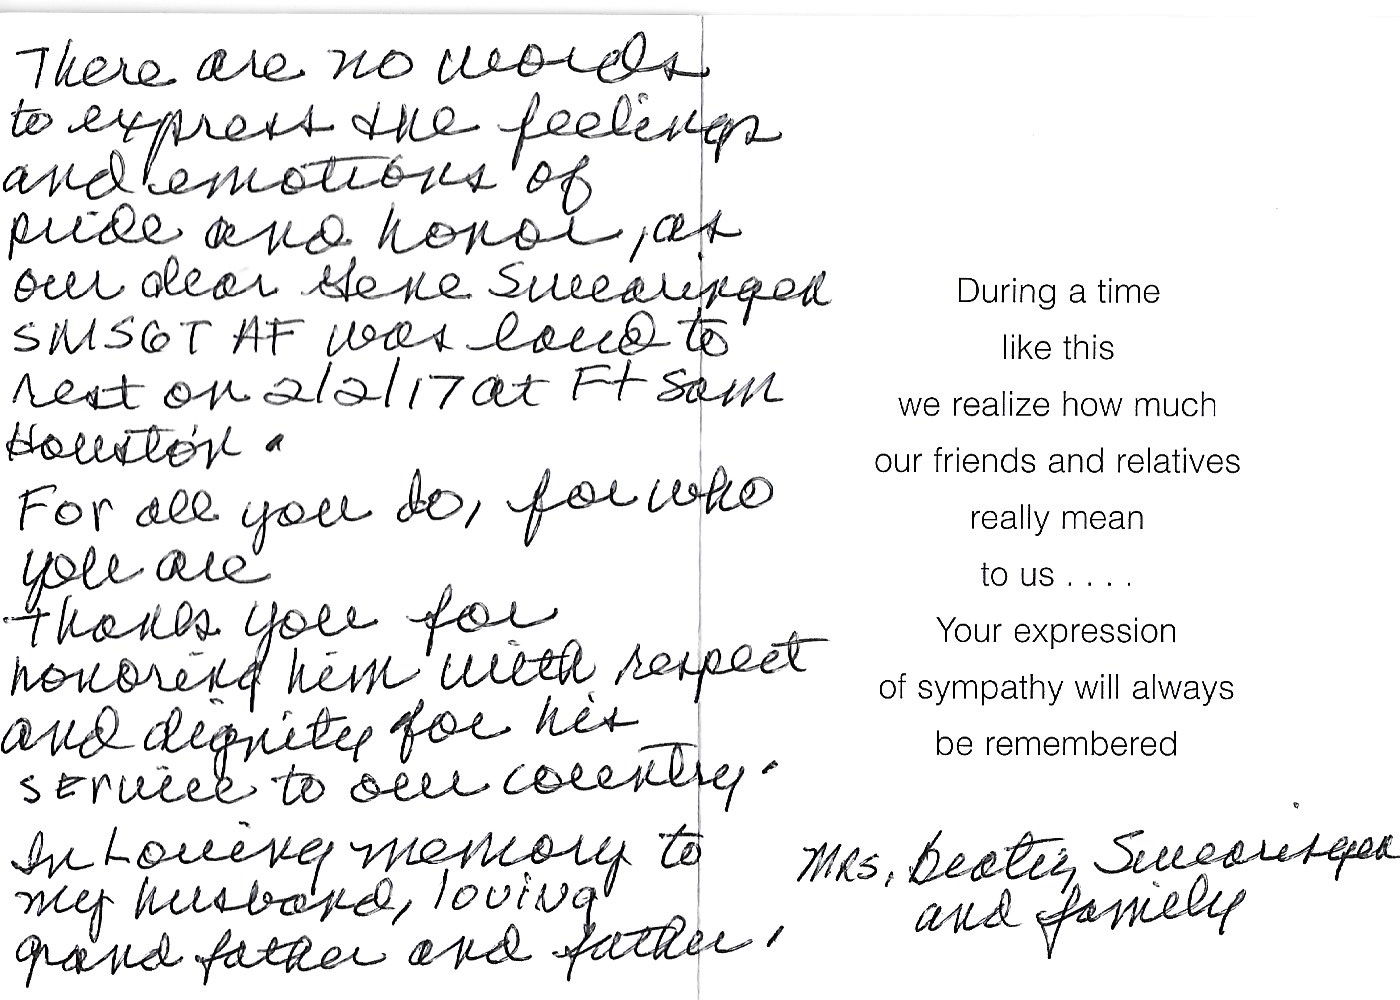 There are no words
to express the feelings
and emotions of
pride and honor, as
our dear Gene Swearingen
SMSGT AF was laud to
rest on 2/2/17 at Ft Sam
Houston.
For all you do, for who
you are
thanks you for
honoring him with respect
and dignity for his
service to our country.
In Loving memory to
my husband, loving
grand father and father.
During a time
like this
we realize how much
our friends and relatives
really mean
to us . . . .
Your expression
of sympathy will always
be remembered
Mrs. Swearingen
and family